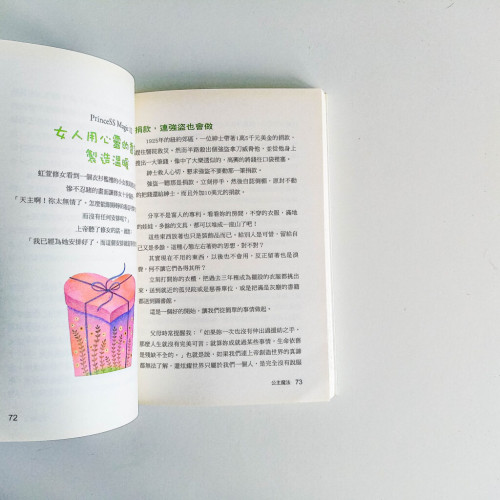 PrinceSS Magic
女人用心靈的
製造溫暖
虹萱修女看到一個衣衫襤褸的小女孩
慘不忍睹的畫面讓修女
「天主啊！祢太無情了，怎麼能
而沒有任何安排呢？」
上帝聽了修女的話，
「我已經為她安排好了，而這
72
捐款，連強盜也會做
1925年的紐約郊區，一位紳士帶著1萬5千元美金的捐款，
趕往醫院救災，然而半路竄出個強盜拿刀威脅他，並從他身上
搜出一大筆錢，像中了大樂透似的，高興的將錢往口袋裡塞。
紳士救人心切，懇求強盜不要動那一筆捐款。
強盜一聽那是捐款，立刻停手，然後白話倒帶，原封不動
的把錢還給紳士，而且外加10萬元的捐款。
分享不是富人的專利，看看妳的房間，不穿的衣服、滿地
的娃娃、多餘的文具，都可以堆成一座山了吧！
這些東西放著也只是裝飾品而已，給別人是可惜，留給自
己又是多餘，這種心態左右著妳的思想，對不對？
其實現在不用的東西，以後也不會用，反正留著也是浪
費，何不讓它們各得其所？
立刻打開妳的衣櫃，把過去三年裡成為擺設的衣服都挑出
來，送到就近的孤兒院或是慈善單位，或是把滿是灰塵的書籍
都送到圖書館。
這是一個好的開始，讓我們從簡單的事情做起。
父母時常提醒我：「如果妳一次也沒有伸出過援助之手，
那麼人生就沒有完美可言；就算妳成就過某些事情，生命依舊
是殘缺不全的。」也就是說，如果我們連上帝創造世界的真諦
都無法了解，還炫耀世界只屬於我們一個人，是完全沒有說服
公主魔法
73